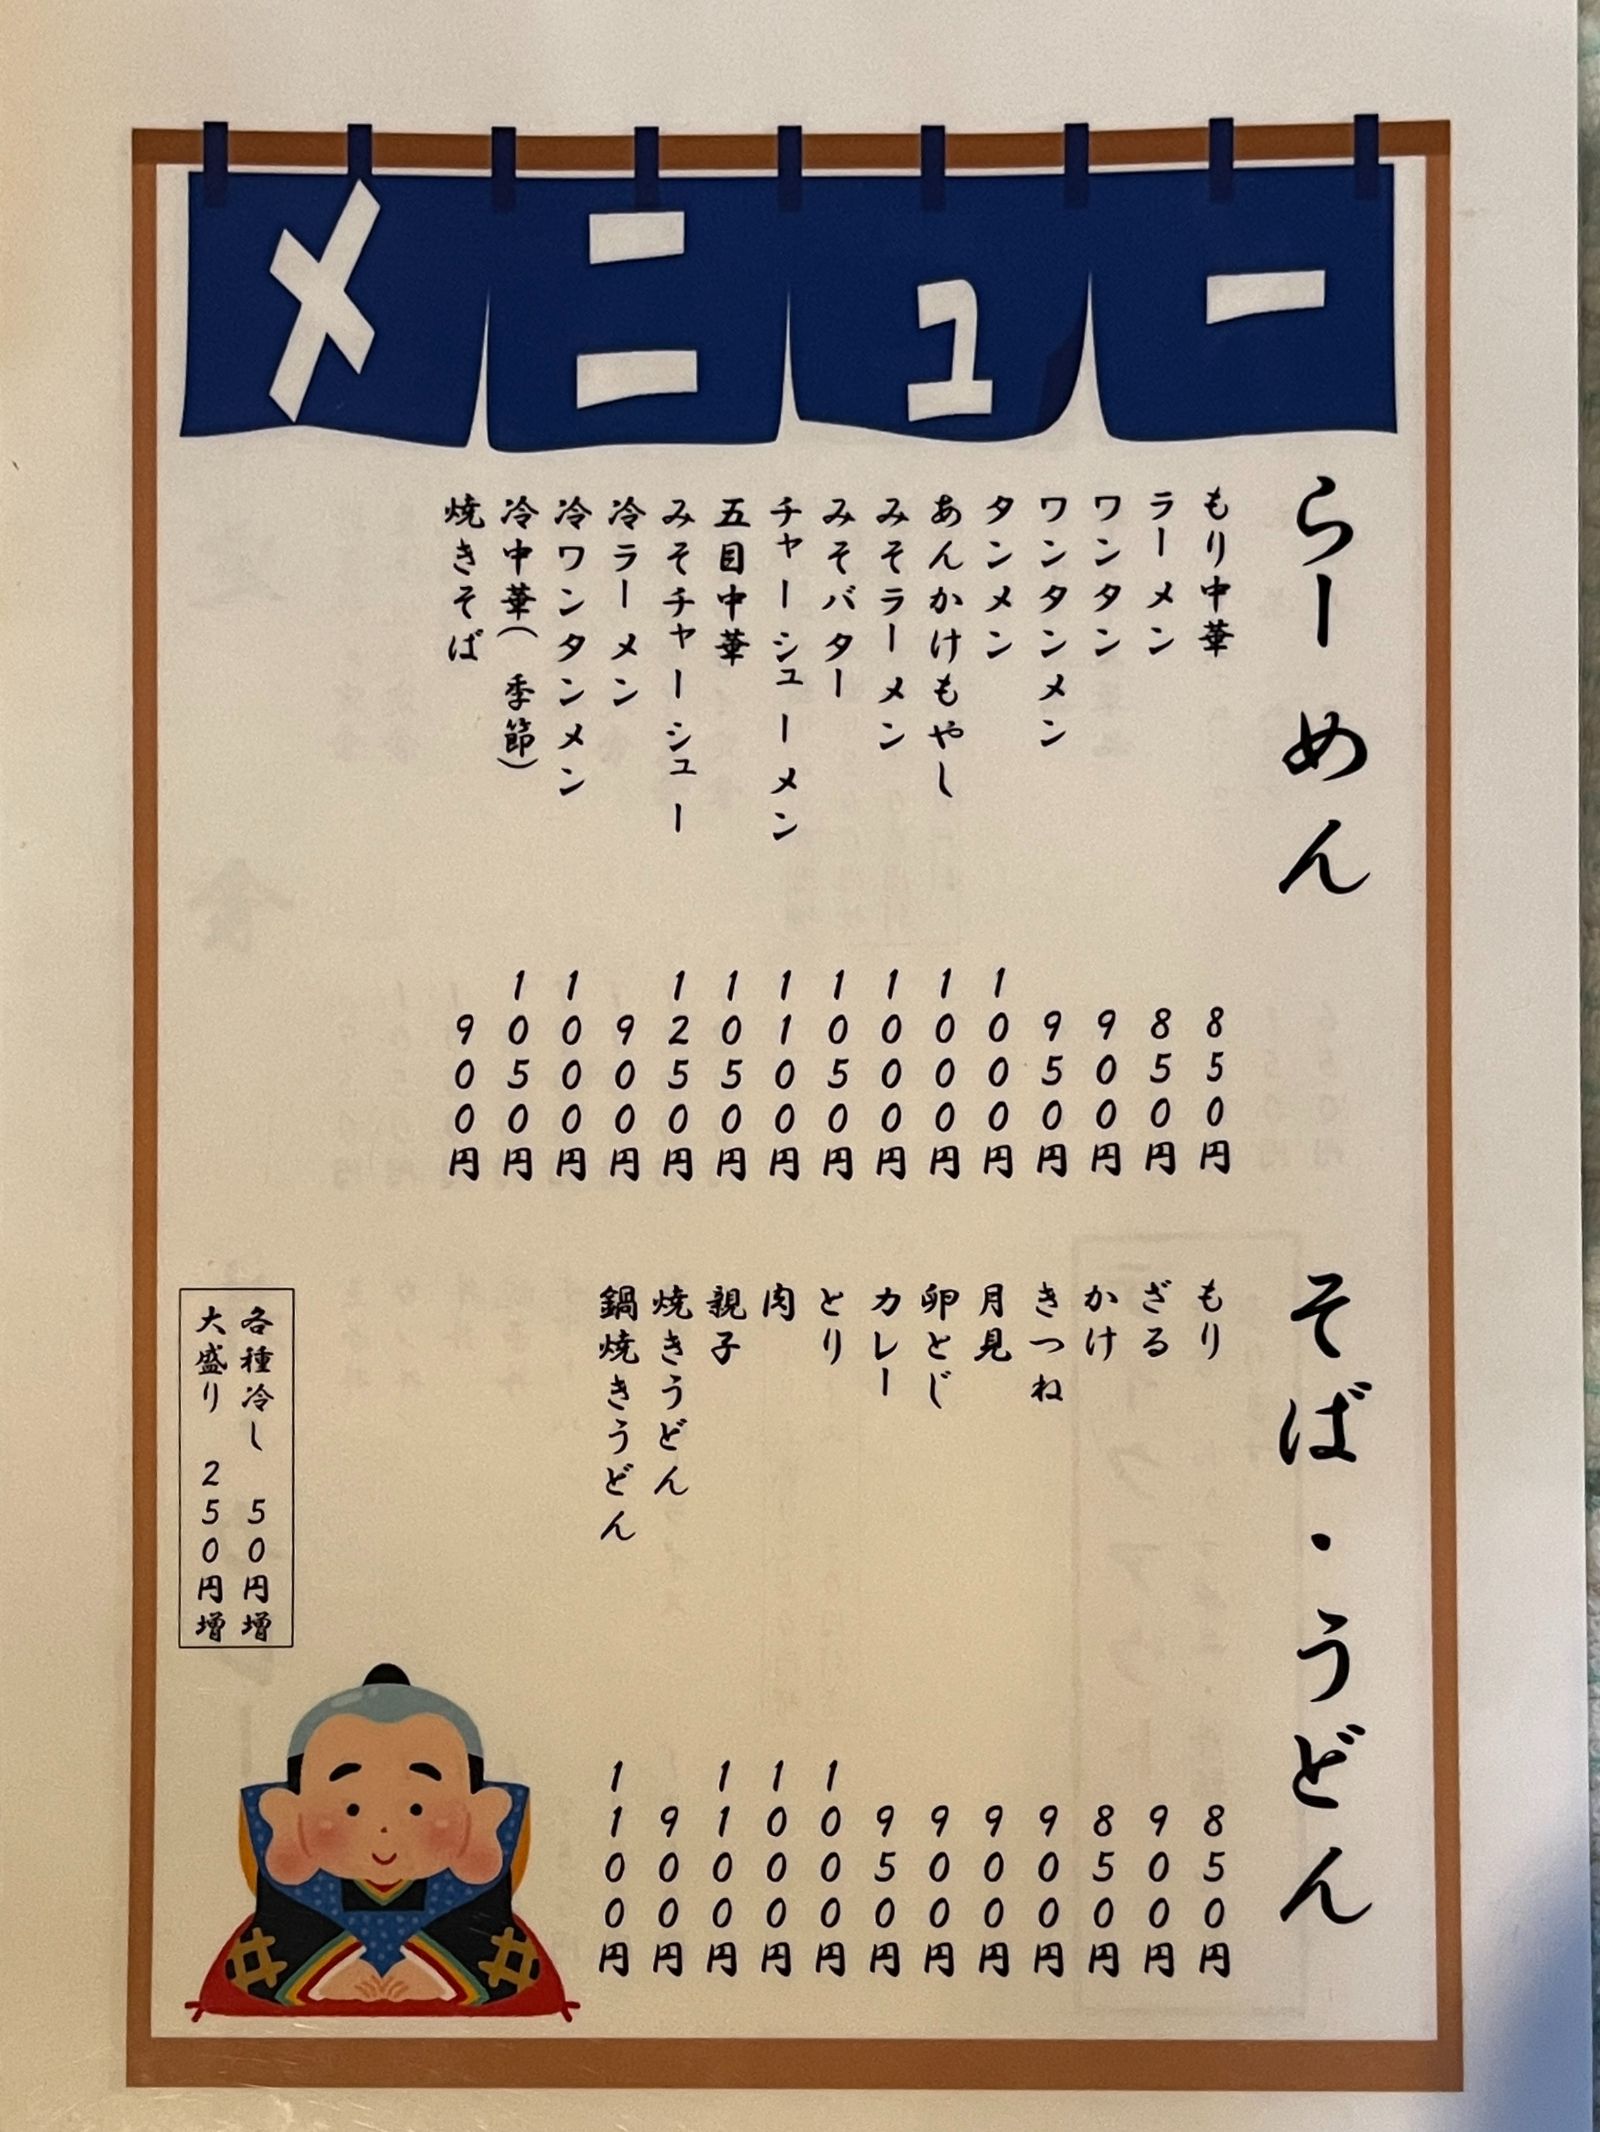 メニュー
らーめん
もり中華 850円
ラーメン 850円
ワンタン 900円
ワンタンメン 950円
タンメン 1000円
あんかけもやし 1000円
みそラーメン 1000円
みそバター 1050円
チャーシューメン 1100円
五目中華 1050円
みそチャーシュー 1250円
冷ラーメン 900円
冷ワンタンメン 1000円
冷中華(季節) 1050円
焼きそば 900円
そば・うどん
もり 850円
ざる 900円
かけ 850円
きつね 900円
月見 900円
卵とじ 900円
カレー 950円
とり 1000円
肉 1000円
親子 1100円
焼きうどん 900円
鍋焼きうどん 1100円
各種冷し 50円増
大盛り 250円増